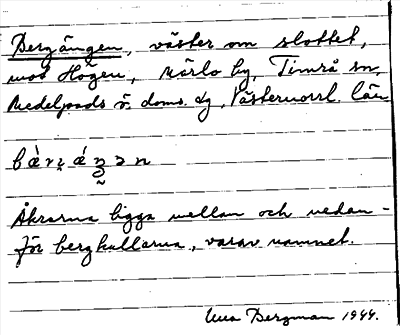 Bergängen, väster om slottet,
mot Högen, Märlo by, Timrå sn,
Medelpads ö. doms. dg, Västernorrl. län
bæ̀rꞏ ǽŋən
Åkrarna ligga mellan och nedan-
för bergkullarna, varav namnet.
Bergman 1944.